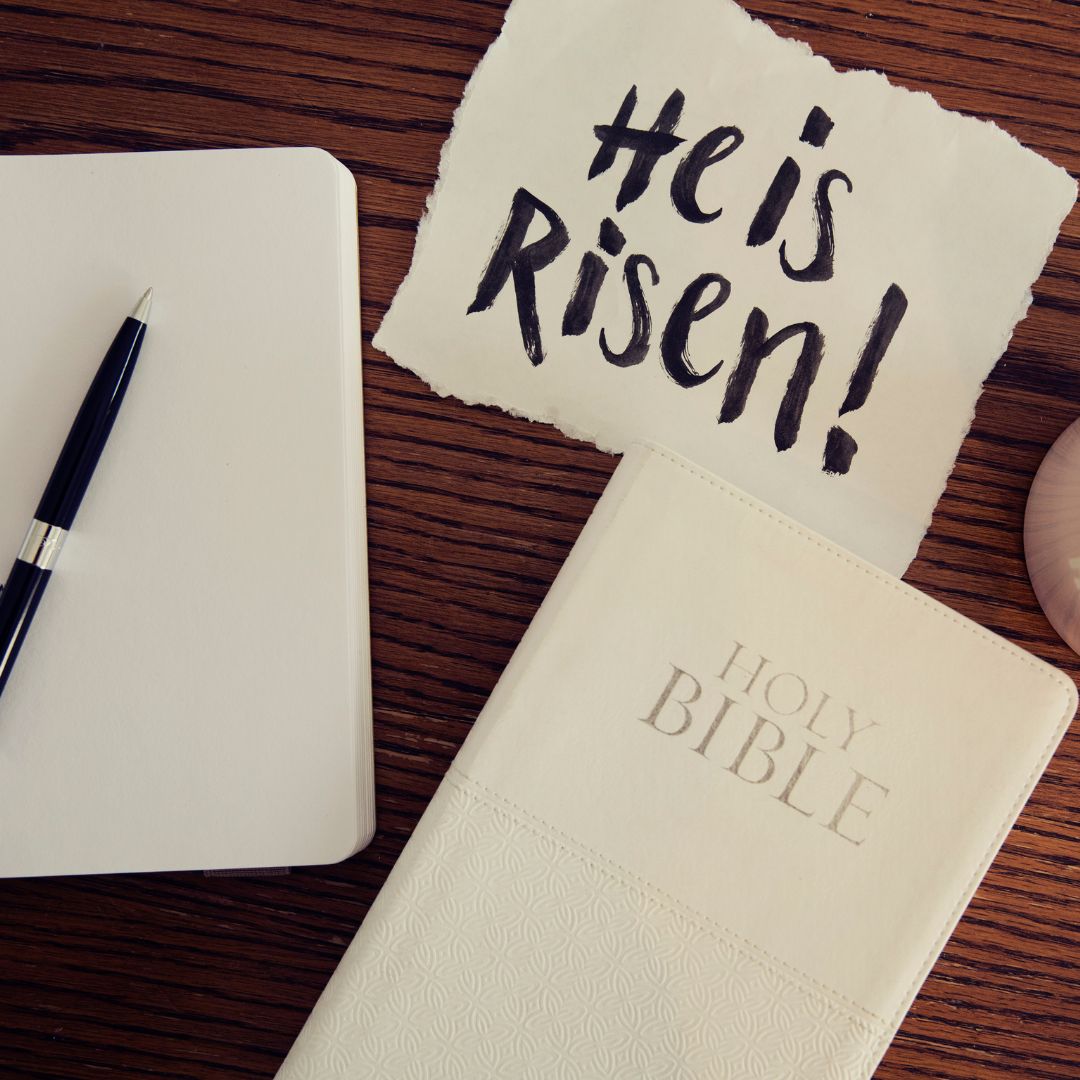 He is
Risen!
HOLY
BIBLE